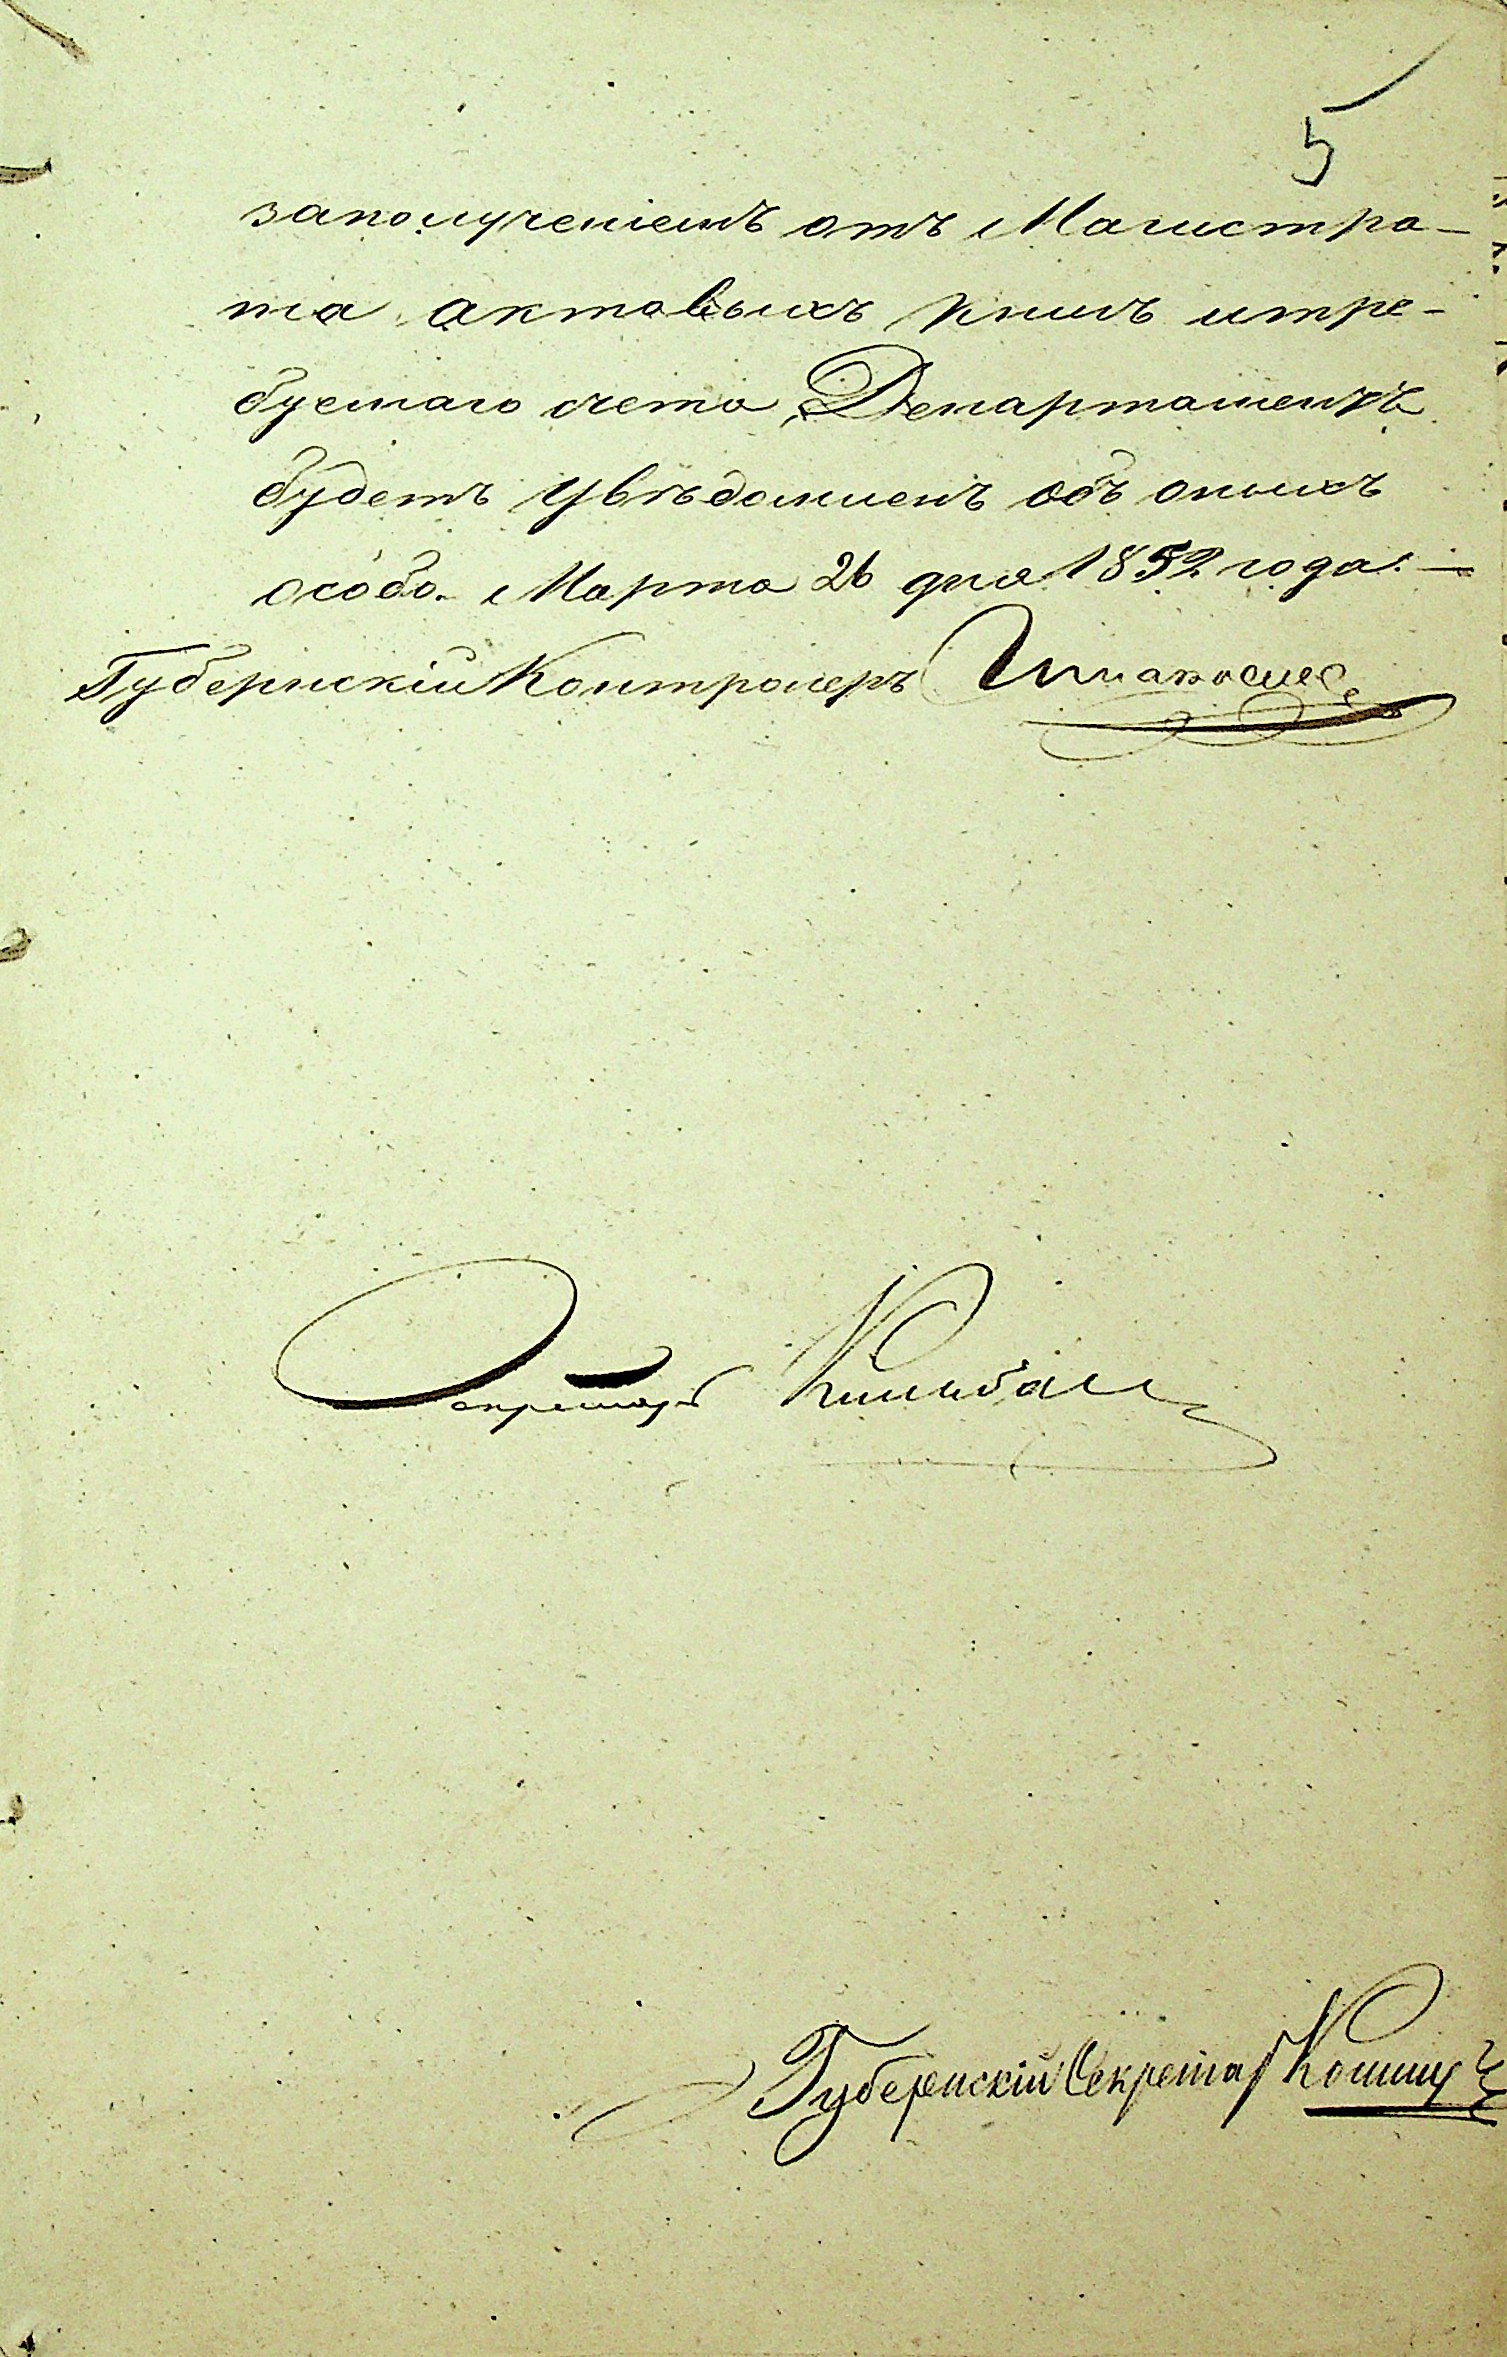 5
заполученіемъ отъ Магистра-
та актовыхъ книгъ итре-
буемаго счета, Департаментъ
будетъ увѣдомленъ объ оныхъ
особо. Марта 26 дня 1852 года. —
Губернскій Контролеръ
Секретарь
Губернскій Секретарь